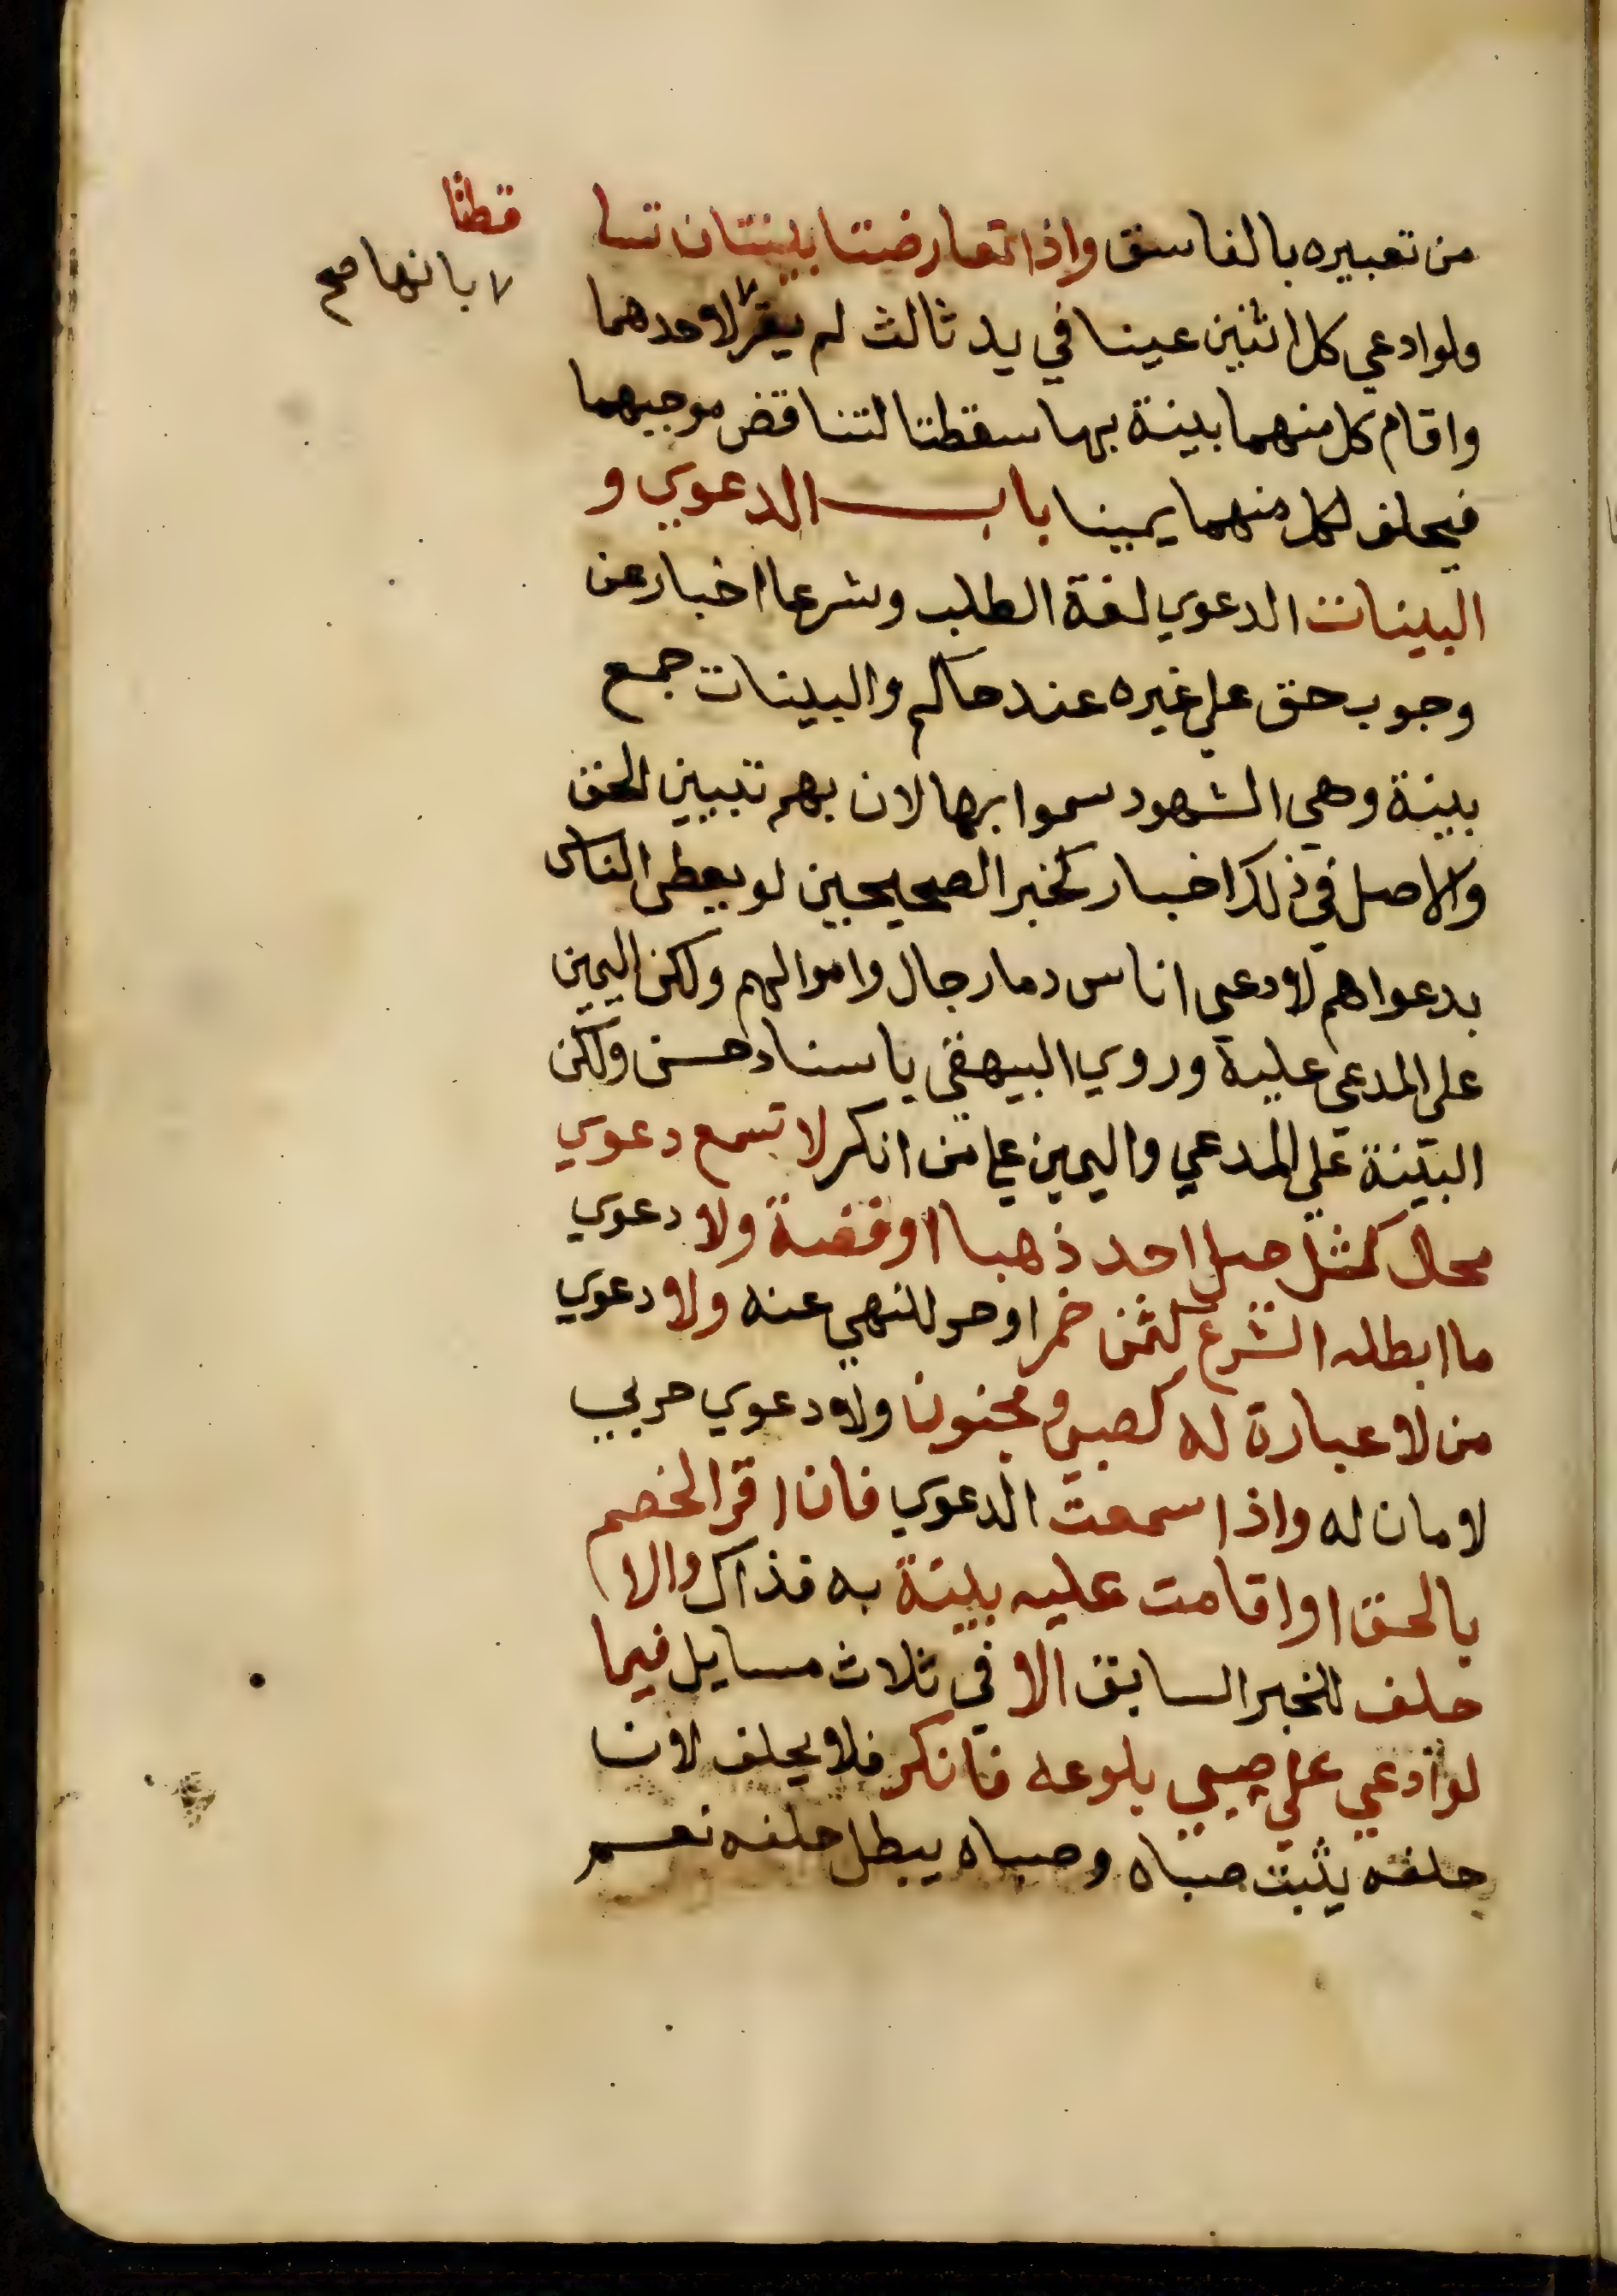 من تعبيره بالفاسق واذا تعارضتا بينتان تسا
قطتا
ولو ادعي كل اثنين عينا في يد ثالث لم يقر لاحدهما
٧ بانها صح
واقام كل منهما بينة بها سقطتا لتناقض موجبهما
فيحلف لكل منهما يمينا باب الدعوي و
البينات الدعوي لغة الطلب وشرعا اخبار عن
وجوب حق علي غيره عند حاكم والبينات جمع
بينة وهي الشهود سموا بها لان بهم تبيين الحق
والاصل في ذلك اخبار كخبر الصحيحين لو يعطى الناس
بدعواهم لادعي اناس دما رجال واموالهم ولكن اليمين
على المدعي عليه وروي البيهقي باسناد حسن ولكن
البينة علي المدعي واليمين علي من انكر لا تسمع دعوي
محال كمثل جبل احد ذهبا او فضة ولا دعوي
ما ابطله الشرع كثمن خمر او حر للنهي عنه ولا دعوي
من لا عبارة له كصبي ومجنون ولا دعوي حربي
لامان له واذا سمعت الدعوي فان اقر الخصم
بالحق او اقامت عليه بينة به فذاك والا
حلف للخبر السابق الا في ثلاث مسايل فيما
لو ادعي علي صبي بلوغه فانكر فلا يحلف لان
حلفه يثبت صباه وصباه يبطل حلفه نعم